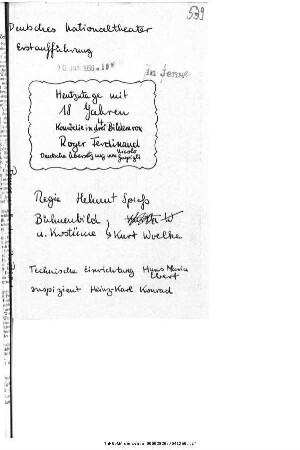 539
Deutsches Nationaltheater
Erstaufführung
Heutzutage mit
18 Jahren
4
Komödie in drei Bildern von
Roger Ferdinand
Nicolo
Deutsche Übersetzung von
Regie Helmut Spieß
Bühnenbild,
u. Kostüme, Kurt Woelke
Technische Einrichtung Hans Maria
Ebert
Inspizient Heinz-Karl Konrad